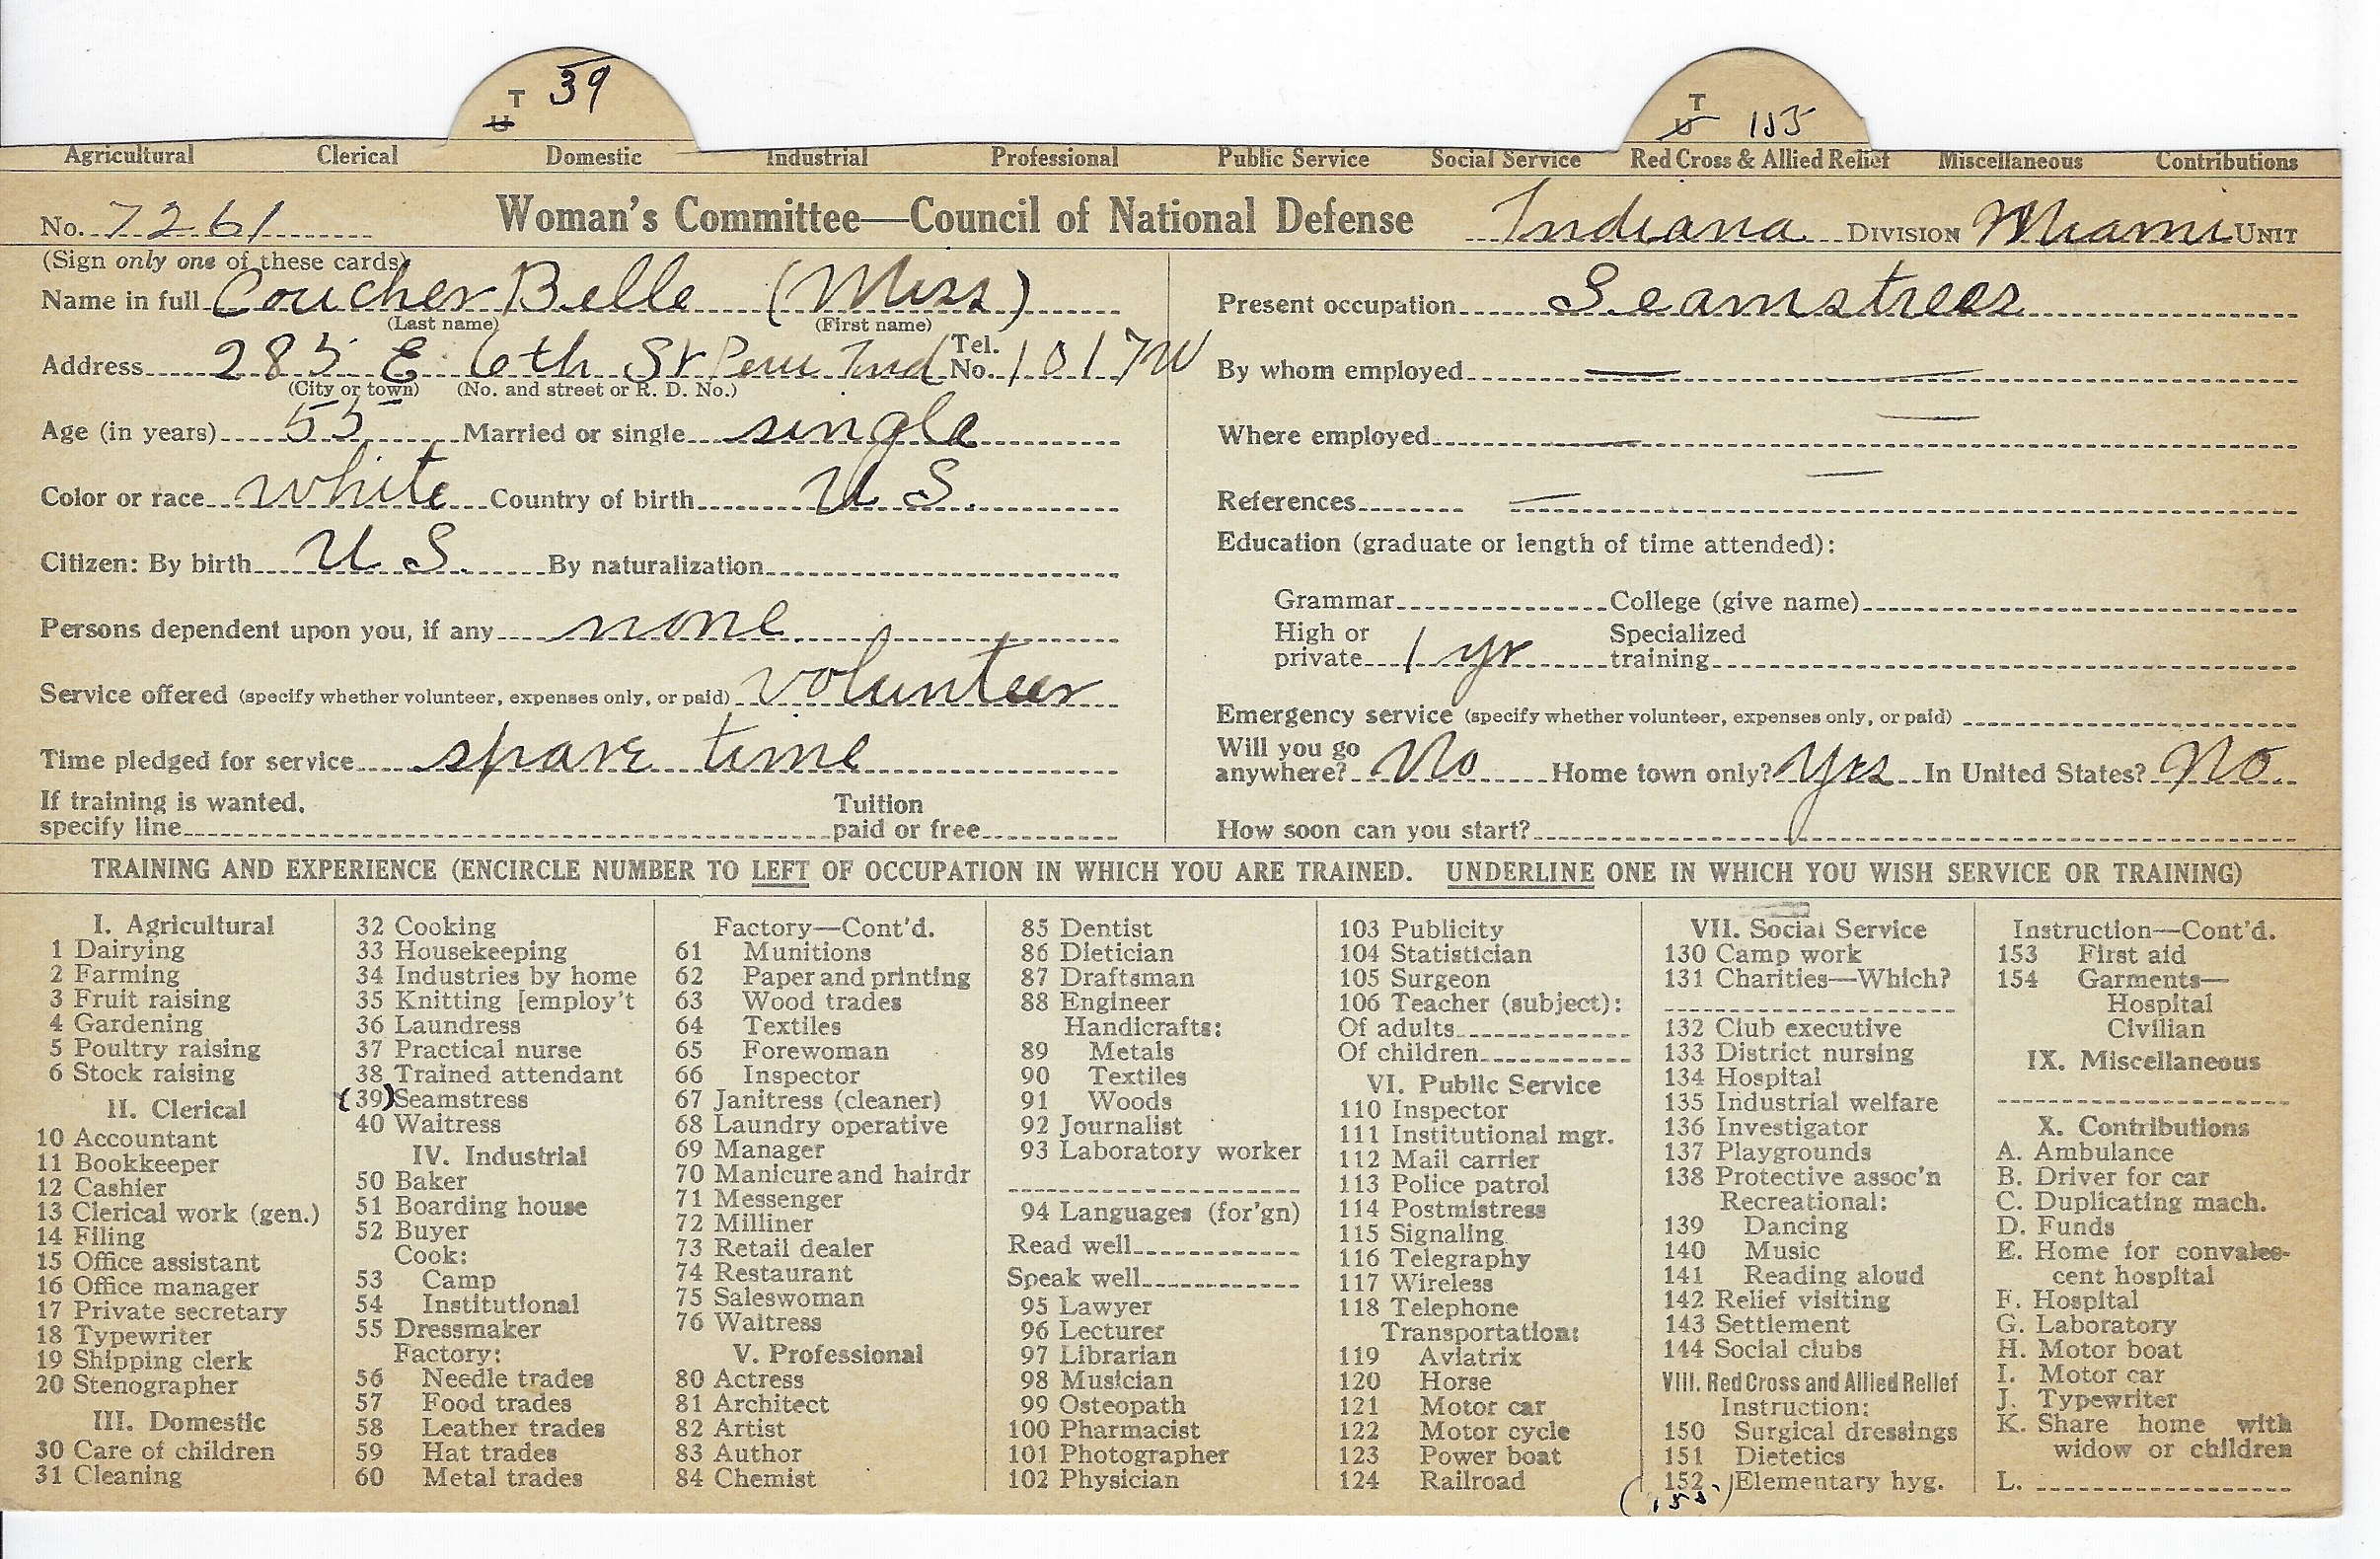 T 39
U
T
U 155
Agricultural Clerical Domestic Industrial Professional Public Service Social Service Red Cross & Allied Relief Miscellaneous Contributions
No. 7261 Woman's Committee—Council of National Defense Indiana DIVISION Miami UNIT
(Sign only one of these cards)
Name in full Coucher Belle (Miss)
(Last name) (First name)
Address 285 E 6th St Peru Ind Tel. No. 1017W
(City or town) (No. and street or R. D. No.)
Age (in years) 55 Married or single single
Color or race white Country of birth U S.
Citizen: By birth U S. By naturalization
Persons dependent upon you, if any none
Service offered (specify whether volunteer, expenses only, or paid) volunteer
Time pledged for service spare time
If training is wanted, specify line Tuition paid or free
Present occupation Seamstress
By whom employed —
Where employed —
References —
Education (graduate or length of time attended):
Grammar College (give name)
High or private 1 yr Specialized training
Emergency service (specify whether volunteer, expenses only, or paid)
Will you go anywhere? No Home town only? Yes In United States? No
How soon can you start?
TRAINING AND EXPERIENCE (ENCIRCLE NUMBER TO LEFT OF OCCUPATION IN WHICH YOU ARE TRAINED. UNDERLINE ONE IN WHICH YOU WISH SERVICE OR TRAINING)
I. Agricultural
1 Dairying
2 Farming
3 Fruit raising
4 Gardening
5 Poultry raising
6 Stock raising
II. Clerical
10 Accountant
11 Bookkeeper
12 Cashier
13 Clerical work (gen.)
14 Filing
15 Office assistant
16 Office manager
17 Private secretary
18 Typewriter
19 Shipping clerk
20 Stenographer
III. Domestic
30 Care of children
31 Cleaning
32 Cooking
33 Housekeeping
34 Industries by home
35 Knitting [employ't
36 Laundress
37 Practical nurse
38 Trained attendant
(39) Seamstress
40 Waitress
IV. Industrial
50 Baker
51 Boarding house
52 Buyer
Cook:
53 Camp
54 Institutional
55 Dressmaker
Factory:
56 Needle trades
57 Food trades
58 Leather trades
59 Hat trades
60 Metal trades
Factory—Cont'd.
61 Munitions
62 Paper and printing
63 Wood trades
64 Textiles
65 Forewoman
66 Inspector
67 Janitress (cleaner)
68 Laundry operative
69 Manager
70 Manicure and hairdr
71 Messenger
72 Milliner
73 Retail dealer
74 Restaurant
75 Saleswoman
76 Waitress
V. Professional
80 Actress
81 Architect
82 Artist
83 Author
84 Chemist
85 Dentist
86 Dietician
87 Draftsman
88 Engineer
Handicrafts:
89 Metals
90 Textiles
91 Woods
92 Journalist
93 Laboratory worker
94 Languages (for'gn)
Read well
Speak well
95 Lawyer
96 Lecturer
97 Librarian
98 Musician
99 Osteopath
100 Pharmacist
101 Photographer
102 Physician
103 Publicity
104 Statistician
105 Surgeon
106 Teacher (subject):
Of adults
Of children
VI. Public Service
110 Inspector
111 Institutional mgr.
112 Mail carrier
113 Police patrol
114 Postmistress
115 Signaling
116 Telegraphy
117 Wireless
118 Telephone
Transportation:
119 Aviatrix
120 Horse
121 Motor car
122 Motor cycle
123 Power boat
124 Railroad
VII. Social Service
130 Camp work
131 Charities—Which?
132 Club executive
133 District nursing
134 Hospital
135 Industrial welfare
136 Investigator
137 Playgrounds
138 Protective assoc'n
Recreational:
139 Dancing
140 Music
141 Reading aloud
142 Relief visiting
143 Settlement
144 Social clubs
VIII. Red Cross and Allied Relief
Instruction:
150 Surgical dressings
151 Dietetics
152 Elementary hyg.
(155)
Instruction—Cont'd.
153 First aid
154 Garments—
Hospital
Civilian
IX. Miscellaneous
X. Contributions
A. Ambulance
B. Driver for car
C. Duplicating mach.
D. Funds
E. Home for convales-
cent hospital
F. Hospital
G. Laboratory
H. Motor boat
I. Motor car
J. Typewriter
K. Share home with
widow or children
L.